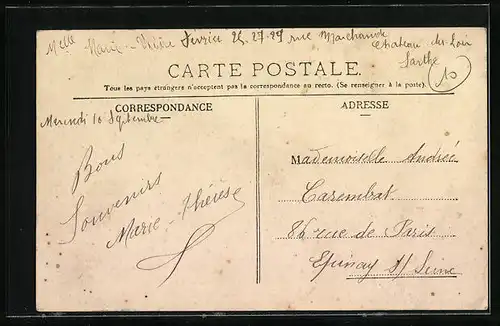 Melle Marie-Louise Ferrier 25-27-29 rue Marchande
Chateau-du-Loir
Sarthe
10
CARTE POSTALE.
Tous les pays étrangers n'acceptent pas la correspondance au recto. (Se renseigner à la poste).
CORRESPONDANCE
Mercredi 10 Septembre
Bons
Souvenirs
Marie-Thérèse
ADRESSE
Mademoiselle Andrée
Carembat
86 rue de Paris
Epinay s/ Seine